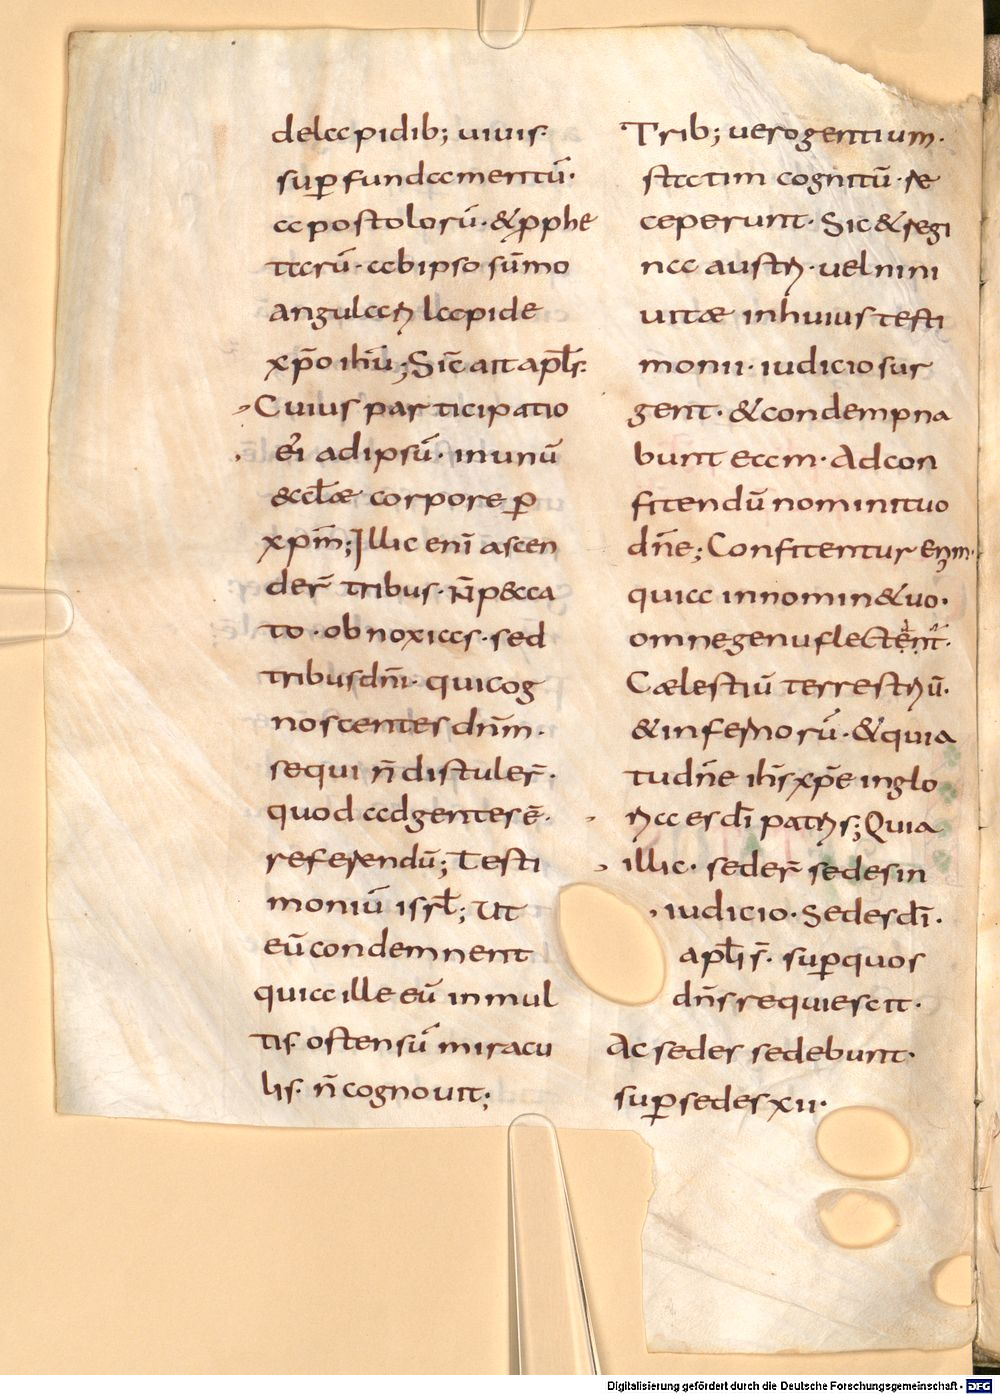 delapidib; uiuis·
sup̄ fundamentū·
apostolorū· & p̄phe
tarū· ab ipso sūmo
angulari lapide
xp̄o ih̄u; Sic̄ ait ap̄ls·
Cuius participatio
ei' ad ipsū· in unū
& eccl̄æ corpore p̄
xp̄m; Illic eni ascen
der̄ tribus· n̄ p&cca
to· obnoxias· sed
tribus dn̄i· qui cog
noscentes dn̄m·
sequi n̄ distuler̄·
quod ad gentes ē·
referendū; Testi
moniū isrl̄; Ut
eū condemnent
quia ille eū in mul
tis· ostensū miracu
lis· n̄ cognouit;
Trib; uero gentium·
statim cognitū· re
ceperunt· Sic & regi
na austri· uel nini
uitæ in huius testi
monii· iudicio sur
gent· & condempna
bunt eam· Ad con
fitendū nomini tuo
dn̄e; Confitentur enim·
quia in nomin& uo·
omne genu flectent·
Cælestiū terrestriū·
& infernorū· & quia
tu dn̄e ih̄s xp̄e in glo
ria es dī patris; Quia
illic· seder̄ sedes in
iudicio· Sedes dī·
apl̄i s̄· sup̄ quos
dn̄s requiescit·
Ac sedes sedebunt·
sup̄ sedes xii·
Digitalisierung gefördert durch die Deutsche Forschungsgemeinschaft - DFG